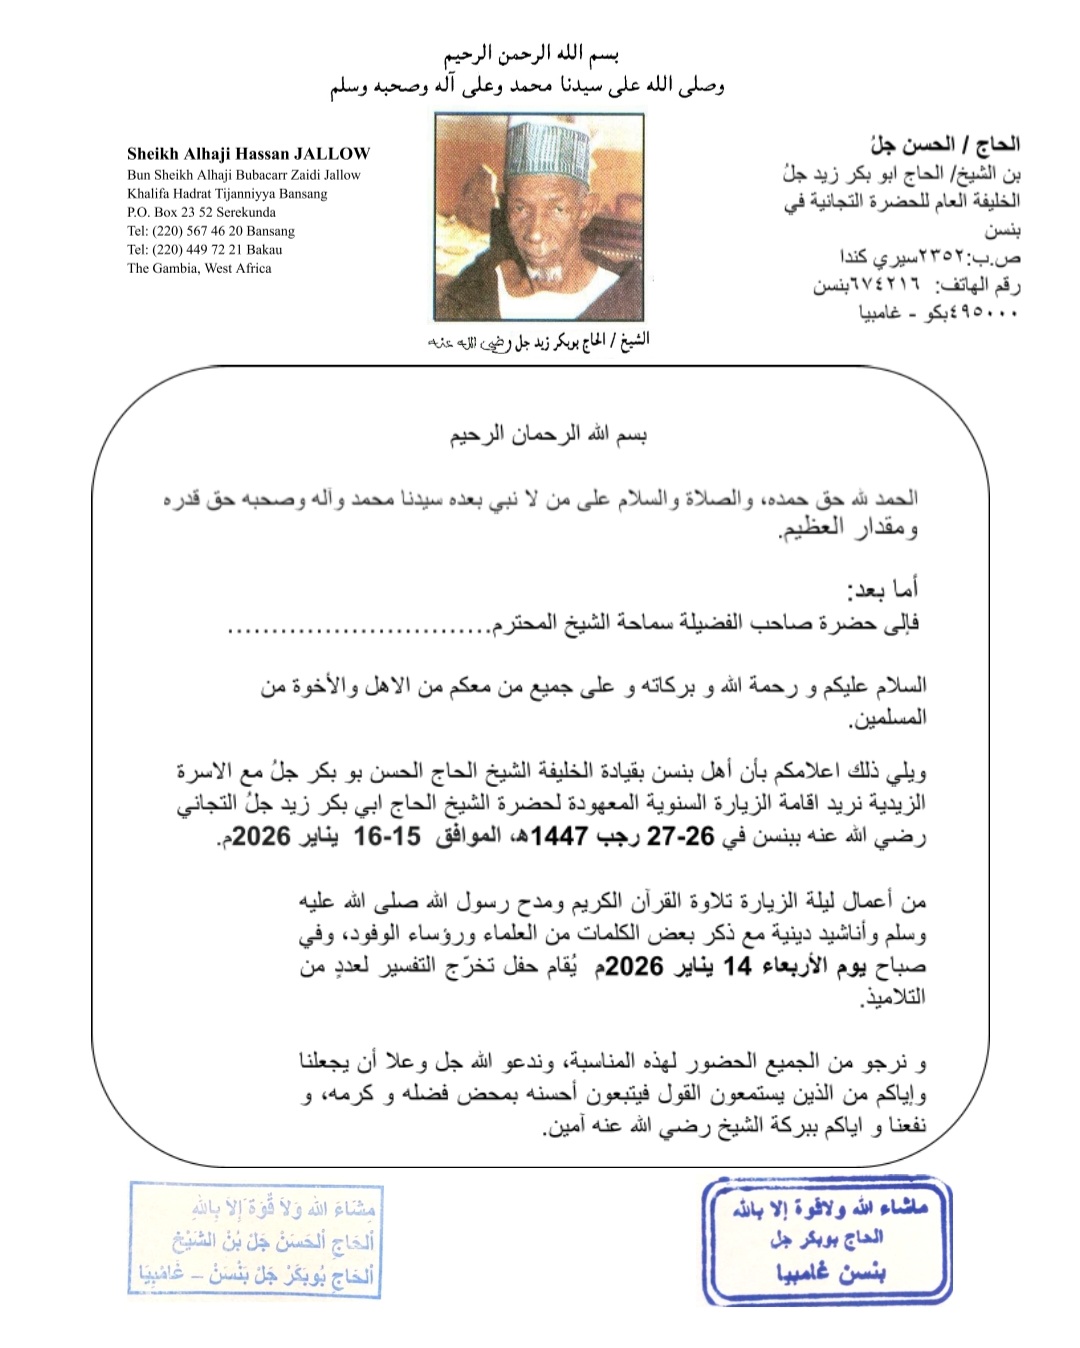 بسم الله الرحمن الرحيم
وصلى الله على سيدنا محمد وعلى آله وصحبه وسلم
Sheikh Alhaji Hassan JALLOW
Bun Sheikh Alhaji Bubacarr Zaidi Jallow
Khalifa Hadrat Tijanniyya Bansang
P.O. Box 23 52 Serekunda
Tel: (220) 567 46 20 Bansang
Tel: (220) 449 72 21 Bakau
The Gambia, West Africa
الحاج / الحسن جلُ
بن الشيخ/ الحاج ابو بكر زيد جلُ
الخليفة العام للحضرة التجانية في
بنسن
ص.ب:٢٣٥٢سيري كندا
رقم الهاتف: ٦٧٤٢١٦بنسن
٤٩٥٠٠٠بكو - غامبيا
الشيخ / الحاج بوبكر زيد جل رضي الله عنه
بسم الله الرحمان الرحيم
الحمد لله حق حمده، والصلاة والسلام على من لا نبي بعده سيدنا محمد وآله وصحبه حق قدره
ومقدار العظيم.
أما بعد:
فإلى حضرة صاحب الفضيلة سماحة الشيخ المحترم..............................
السلام عليكم و رحمة الله و بركاته و على جميع من معكم من الاهل والأخوة من
المسلمين.
ويلي ذلك اعلامكم بأن أهل بنسن بقيادة الخليفة الشيخ الحاج الحسن بو بكر جلُ مع الاسرة
الزيدية نريد اقامة الزيارة السنوية المعهودة لحضرة الشيخ الحاج ابي بكر زيد جلُ التجاني
رضي الله عنه ببنسن في 26-27 رجب 1447ه، الموافق 15-16 يناير 2026م.
من أعمال ليلة الزيارة تلاوة القرآن الكريم ومدح رسول الله صلى الله عليه
وسلم وأناشيد دينية مع ذكر بعض الكلمات من العلماء ورؤساء الوفود، وفي
صباح يوم الأربعاء 14 يناير 2026م يُقام حفل تخرّج التفسير لعددٍ من
التلاميذ.
و نرجو من الجميع الحضور لهذه المناسبة، وندعو الله جل وعلا أن يجعلنا
وإياكم من الذين يستمعون القول فيتبعون أحسنه بمحض فضله و كرمه، و
نفعنا و اياكم ببركة الشيخ رضي الله عنه آمين.
مِشَاءَ الله وَلاَ قُوَةَ إِلاَ بِاللهِ
اَلحَاجِ اَلحَسَنْ جَلْ بُنْ الشَيْخْ
اَلحَاجِ بُوبَكَرْ جَلْ بَنْسَنْ – غَامْبِيَا
ماشاء الله ولاقوة إلا بالله
الحاج بوبكر جل
بنسن غامبيا